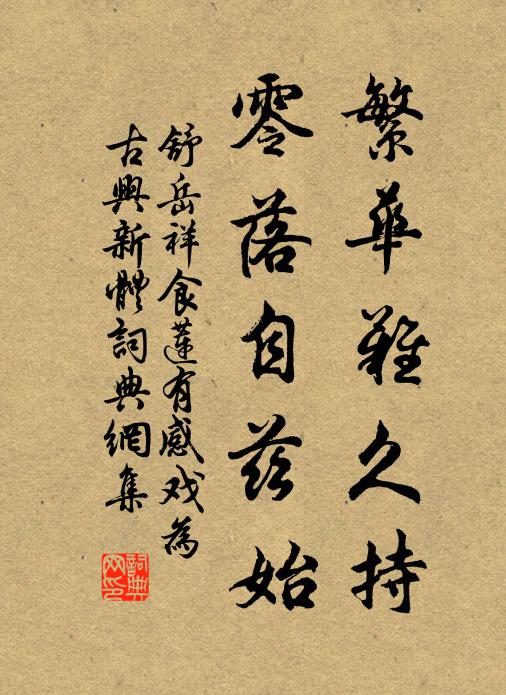 繁華難久持
零落自茲始
舒岳祥食蓮有感戏為
古興新體詞典網集
詞典
网印